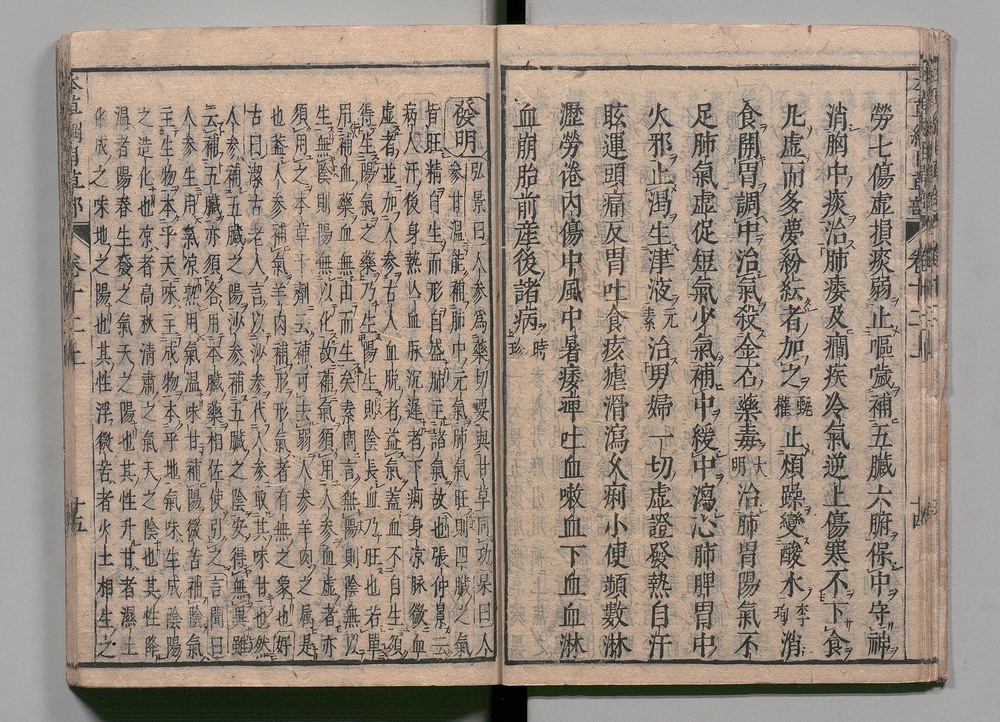 勞七傷虛損痰弱止嘔噦補五臟六腑保中守神
消胸中痰治肺痿及癇疾冷氣逆上傷寒不下食
凡虛而多夢紛紜者加之甄權止煩躁變酸水李珣消
食開胃調中治氣殺金石藥毒大明治肺胃陽氣不
足肺氣虛促短氣少氣補中緩中瀉心肺脾胃中
火邪止渴生津液元素治男婦一切虛證發熱自汗
眩運頭痛反胃吐食痎瘧滑瀉久痢小便頻數淋
瀝勞倦內傷中風中暑痿痺吐血嗽血下血血淋
血崩胎前産後諸病時珍
發明弘景曰人參爲藥切要與甘草同功杲曰人
參甘溫能補肺中元氣肺氣旺則四臟之氣
皆旺精自生而形自盛肺主諸氣故也張仲景云
病人汗後身熱亡血脈沉遲者下痢身涼脈微血
虛者並加人參古人血脫者益氣蓋血不自生須
得生陽氣之藥乃生陽生則陰長血乃旺也若單
用補血藥血無由而生矣素問言無陽則陰無以
生無陰則陽無以化故補氣須用人參血虛者亦
須用之本草十劑云補可去弱人參羊肉之屬是
也蓋人參補氣羊肉補形形氣者有無之象也好
古曰潔古老人言以沙參代人參取其味甘也然
人參補五臟之陽沙參補五臟之陰安得無異雖
云補五臟亦須各用本臟藥相佐使引之言聞曰
人參生用氣凉熟用氣溫味甘補陽微苦補陰氣
主生物本乎天味主成物本乎地氣味生成陰陽
之造化也凉者高秋清肅之氣天之陰也其性降
溫者陽春生發之氣天之陽也其性升甘者濕土
化成之味地之陽也其性浮微苦者火土相生之
卷十二上
十五